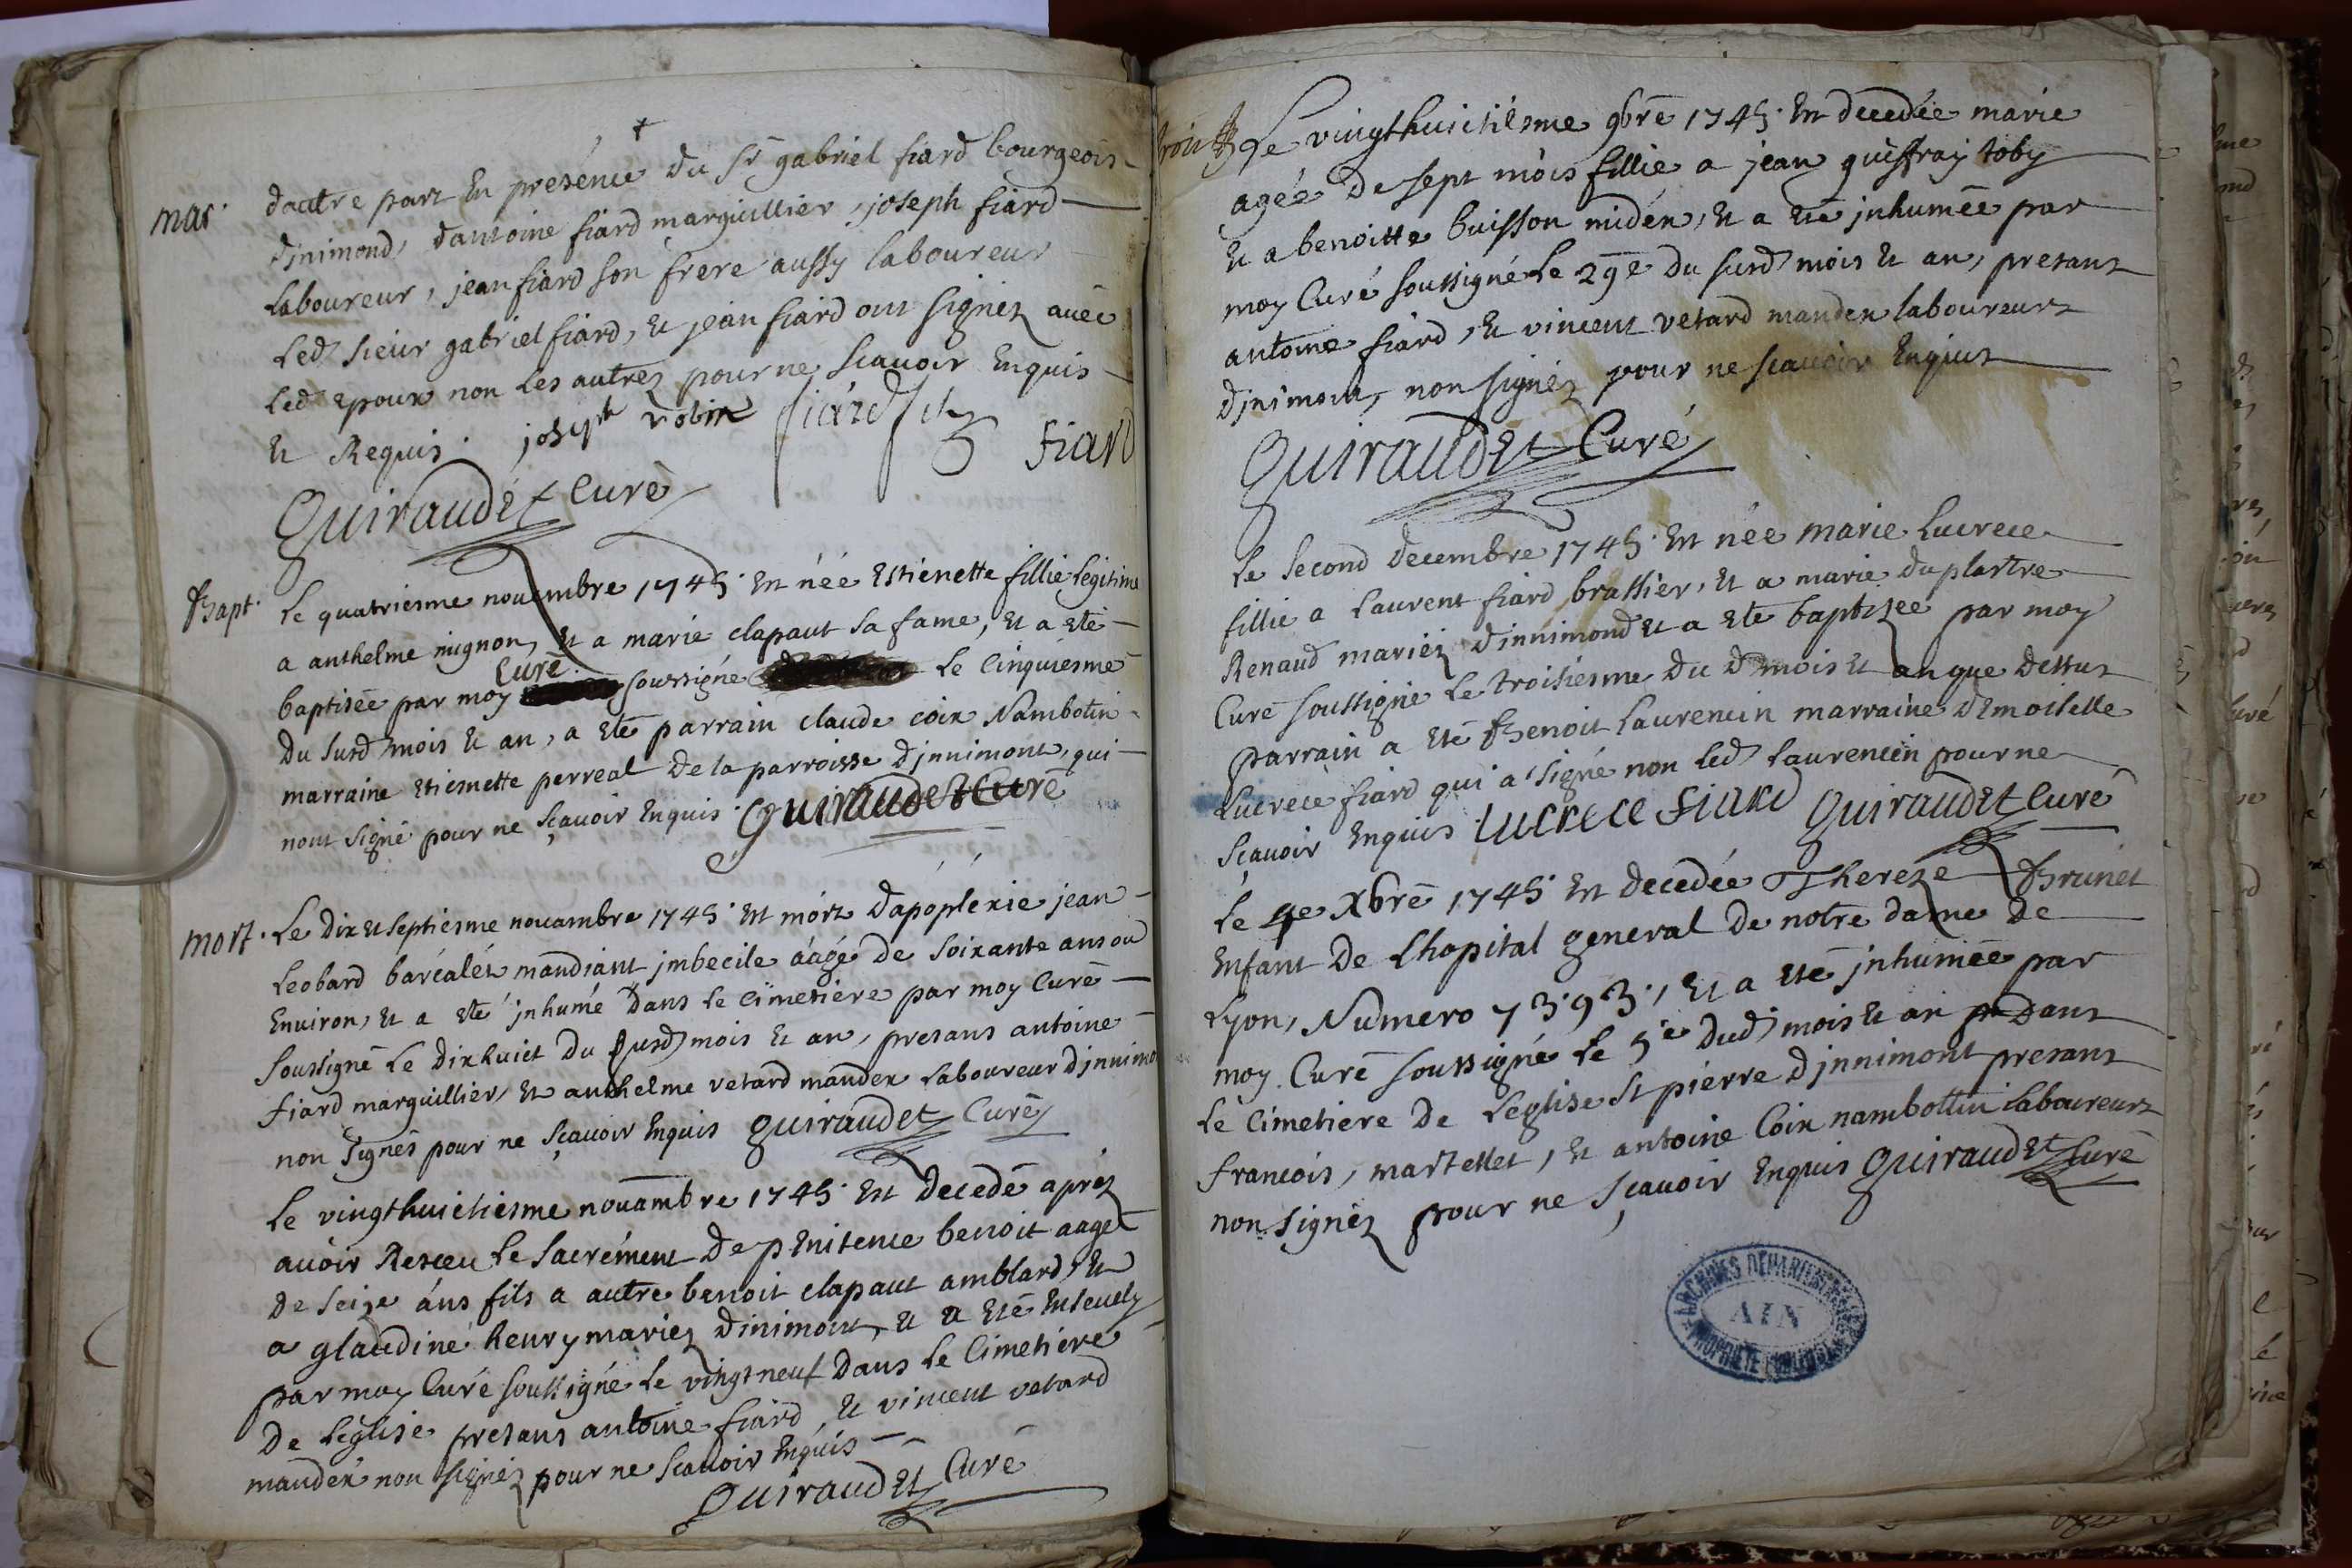 †
mar.
dautre part En presence du Sr gabriel fiard bourgeois
dinimond, dantoine fiard marguillier, joseph fiard
laboureur, jean fiard son frere aussy laboureur
led sieur gabriel fiard, Et jean fiard ont signéz avéc
led epoux non les autrez pour ne scavoir Enquis
Et Requis. joseph robin fiard fiard
Quiraudet Curé
Bapt. Le quatriesme novembre 1745. Est néé Estienette fillie legitime
a anthelme mignon, Et a marie clapaut sa fame, Et a eté
baptiséé par moy Curé soussigné le Cinquiesme
du susd mois Et an, a eté parrain claude coix Nambotin
marraine Etiesnette perreal de la parroisse dinnimont, qui
nont signé pour ne sçavoir Enquis. Quiraudet Curé
mort. Le dix Et septiesme novambre 1745. Est mort dapopléxie jean
Leobard baréalét mandiant jmbecile áágé de soixante ans ou
Environ, Et a eté jnhumé dans le cimetiére par moy Curé
soussigné le dixhuict du susd mois Et an, presans antoine
fiard marguillier, Et anthelme vetard mandex laboureur dinnimo
non signés pour ne sçavoir Enquis Quiraudet Curé
Le vingthuictiesme novambre 1745. Est decedé apréz
avoir Resceu le sacrément de penitence benoit aagé
de seize áns fils a autre benoit clapaut amblard, Et
a glaudine henry mariez dinimont, Et a eté Ensevely
par moy Curé soussigné le vingtneuf dans le Cimetiére
de leglise presans antoine fiard, Et vincent vetard
mandex non signéz pour ne scavoir Enquis
Quiraudet Curé
Le vingthuictiésme 9bre 1745. Est decedée marie
agéé de sept mois fillie a jean guiffray toby
Et a benoitte buisson midex, Et a eté jnhuméé par
moy Curé soussigné le 29e du susd mois Et an, presans
antoine fiard, Et vincent vetard mandex laboureurs
dinimont, non signéz pour ne scavoir Enquis
Quiraudet Curé
Le second decembre 1745. Est néé marie Lucrece
fillie a laurent fiard brassier, Et a marie duplastre
Renaud mariéz dinnimond Et a eté baptizéé par moy
Curé soussigné le troisiesme du d mois Et an que dessus
parrain a eté Benoit laurencin marraine demoiselle
Lucrece fiard qui a signé non led laurencin pour ne
sçavoir Enquis. Lucrece fiard Quiraudet Curé
Le 4e Xbre 1745. Est decedéé Thereze Brunet
Enfant de lhopital general de notre dame de
Lyon, Numero 7393, Et a eté jnhuméé par
moy Curé soussigné le 5e dud mois Et an dans
le Cimetiére de leglise st pierre dinnimont presans
francois, martellet, Et antoine Coix nambottin laboureurs
non signéz pour ne sçavoir Enquis Quiraudet Curé
ARCHIVES DEPARTEMENTALES
AIN
PROPRIETE PUBLIQUE